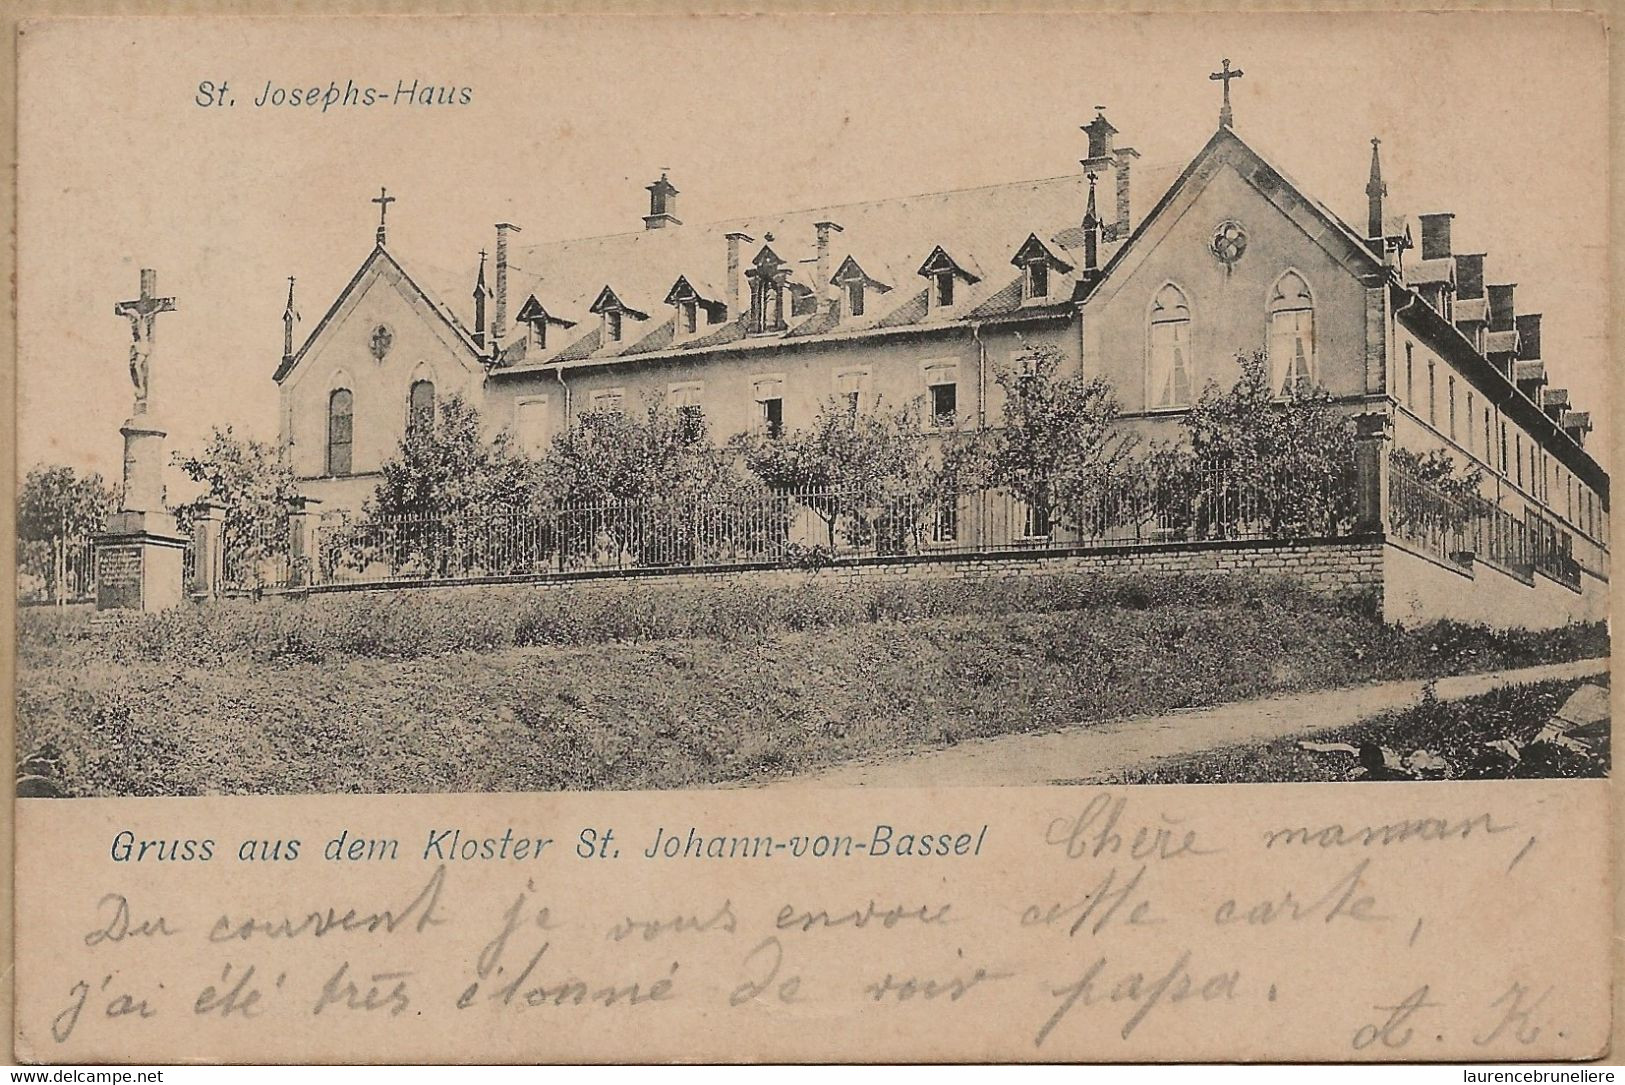 St. Josephs-Haus
Gruss aus dem Kloster St. Johann-von-Bassel
Chère maman,
Du couvent je vous envoie cette carte,
j'ai été très étonné de voir papa.
A. K.
www.delcampe.net
laurencebruneliere